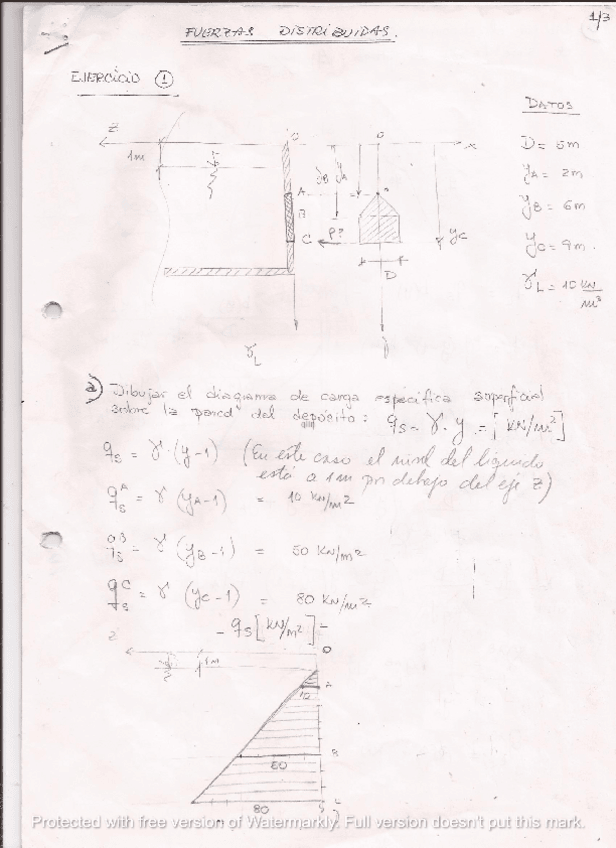 1/3
FUERZAS DISTRIBUIDAS.
EJERCICIO 1
DATOS
Z
O
O
x
1m
yB
yA
A
B
C
P?
yC
D
D = 5m
yA = 2m
yB = 6m
yC = 9m.
γL = 10 KN/m³
γL
a) Dibujar el diagrama de carga especifica superficial
sobre la pared del depósito: qs = γ · y = [KN/m²]
qs = γ · (y-1) (En este caso el nivel del liquido
está a 1m por debajo del eje Z)
qsA = γ (yA-1) = 10 KN/m²
qsB = γ (yB-1) = 50 KN/m²
qsC = γ (yC-1) = 80 KN/m²
- qs [KN/m²]
z
O
1m
10
80
Protected with free version of Watermarkly. Full version doesn't put this mark.